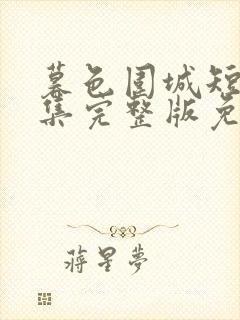 暮色围城短
集完整版免
蒋星梦